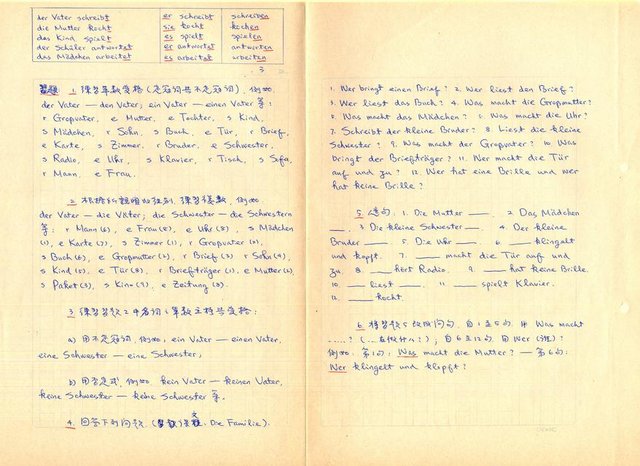 der Vater schreibt er schreibt schreiben
die Mutter kocht sie kocht kochen
das Kind spielt es spielt spielen
der Schüler antwortet er antwortet antworten
das Mädchen arbeitet es arbeitet arbeiten
習題 1. 練習單數受格 (定冠詞与不定冠詞), 例如
der Vater — den Vater; ein Vater — einen Vater 等:
r Großvater, e Mutter, e Tochter, s Kind,
s Mädchen, r Sohn, s Buch, e Tür, r Brief,
e Karte, s Zimmer, r Bruder, e Schwester,
s Radio, e Uhr, s Klavier, r Tisch, s Sofa,
r Mann, e Frau.
2. 練習複數, 例如
der Vater — die Väter; die Schwester — die Schwestern
等: r Mann (6), e Frau (5), e Uhr (5), s Mädchen
(1), e Karte (7), s Zimmer (1), r Großvater (2),
s Buch (6), e Großmutter (2), r Brief (3), r Sohn (4),
s Kind (5), e Tür (8), r Briefträger (1), e Mutter (2),
s Paket (3), s Kino (9), e Zeitung (8).
3. 練習習題 2 中名詞之單數主格与受格:
a) 用不定冠詞, 例如: ein Vater — einen Vater,
eine Schwester — eine Schwester;
b) 用否定式, 例如 kein Vater — keinen Vater,
keine Schwester — keine Schwester 等.
4. 回答下列問題. Die Familie).
1. Wer bringt einen Brief? 2. Wer liest den Brief?
3. Wer liest das Buch? 4. Was macht die Großmutter?
5. Was macht das Mädchen? 6. Was macht die Uhr?
7. Schreibt der kleine Bruder? 8. Liest die kleine
Schwester? 9. Was macht der Großvater? 10. Was
bringt der Briefträger? 11. Wer macht die Tür
auf und zu? 12. Wer hat eine Brille und wer
hat keine Brille?
5. 造句: 1. Die Mutter ___. 2. Das Mädchen
___. 3. Die kleine Schwester ___. 4. Der kleine
Bruder ___. 5. Die Uhr ___. 6. ___ klingelt
und klopft. 7. ___ macht die Tür auf und
zu. 8. ___ hört Radio. 9. ___ hat keine Brille.
10. ___ liest ___. 11. ___ spielt Klavier.
12. ___ kocht.
6. 將習題 5 改成問句, 自 1 至 5 句 用 Was macht
.....? (...在做什么?); 自 6 至 12 句 用 Wer (誰)?
例如: 第1句: Was macht die Mutter? — 第6句:
Wer klingelt und klopft?